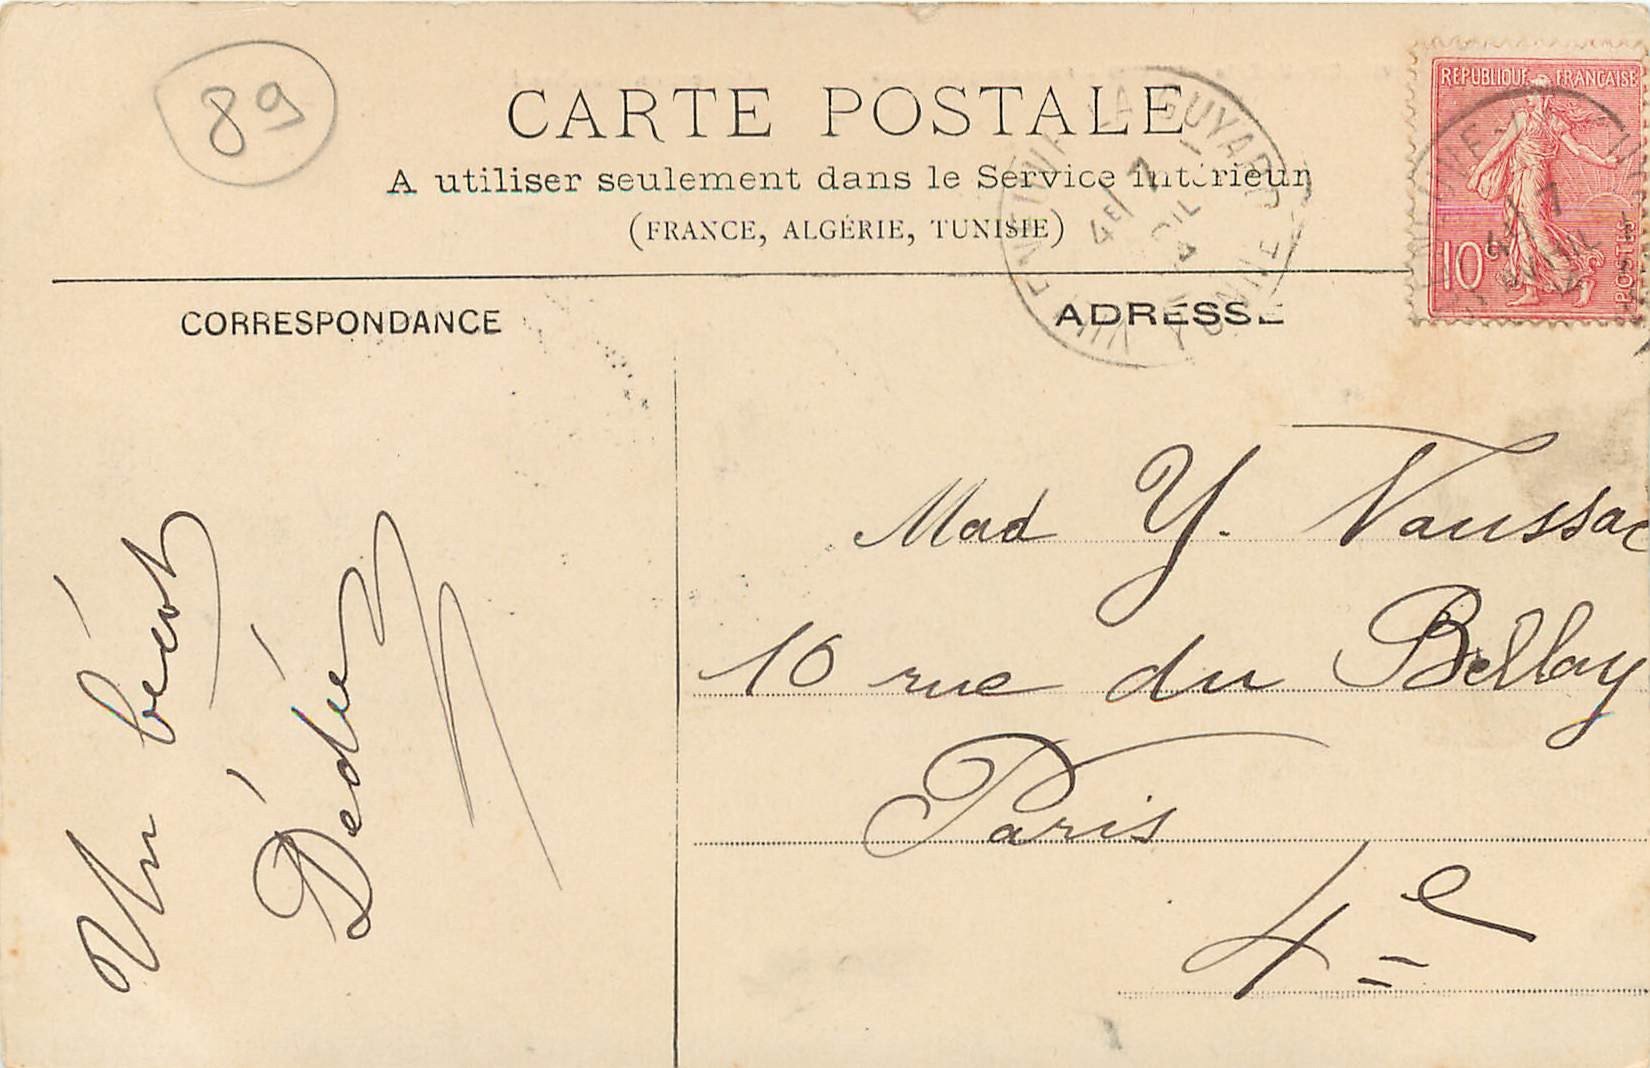 89
CARTE POSTALE
A utiliser seulement dans le Service intérieur
(FRANCE, ALGÉRIE, TUNISIE)
CORRESPONDANCE
ADRESSE
RÉPUBLIQUE FRANÇAISE
10c
POSTES
VILLENEUVE LA GUYARD
YONNE
4E
Un bécot
Dédé
Mad Y. Vaussac
10 rue du Bellay
Paris
4e